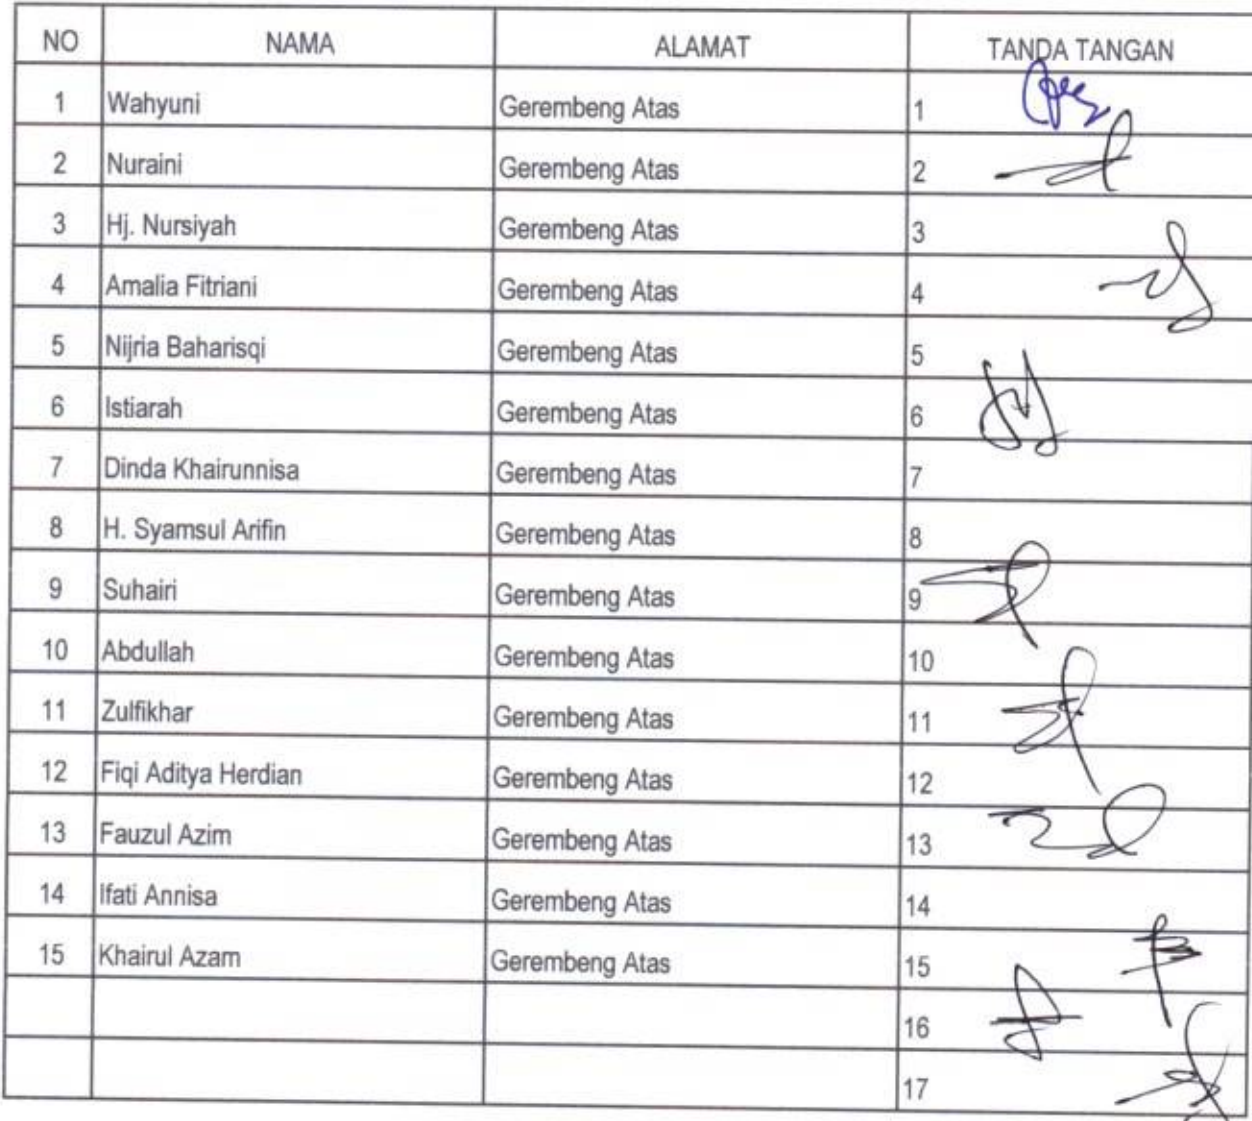 NO NAMA ALAMAT TANDA TANGAN
1 Wahyuni Gerembeng Atas 1
2 Nuraini Gerembeng Atas 2
3 Hj. Nursiyah Gerembeng Atas 3
4 Amalia Fitriani Gerembeng Atas 4
5 Nijria Baharisqi Gerembeng Atas 5
6 Istiarah Gerembeng Atas 6
7 Dinda Khairunnisa Gerembeng Atas 7
8 H. Syamsul Arifin Gerembeng Atas 8
9 Suhairi Gerembeng Atas 9
10 Abdullah Gerembeng Atas 10
11 Zulfikhar Gerembeng Atas 11
12 Fiqi Aditya Herdian Gerembeng Atas 12
13 Fauzul Azim Gerembeng Atas 13
14 Ifati Annisa Gerembeng Atas 14
15 Khairul Azam Gerembeng Atas 15
16
17